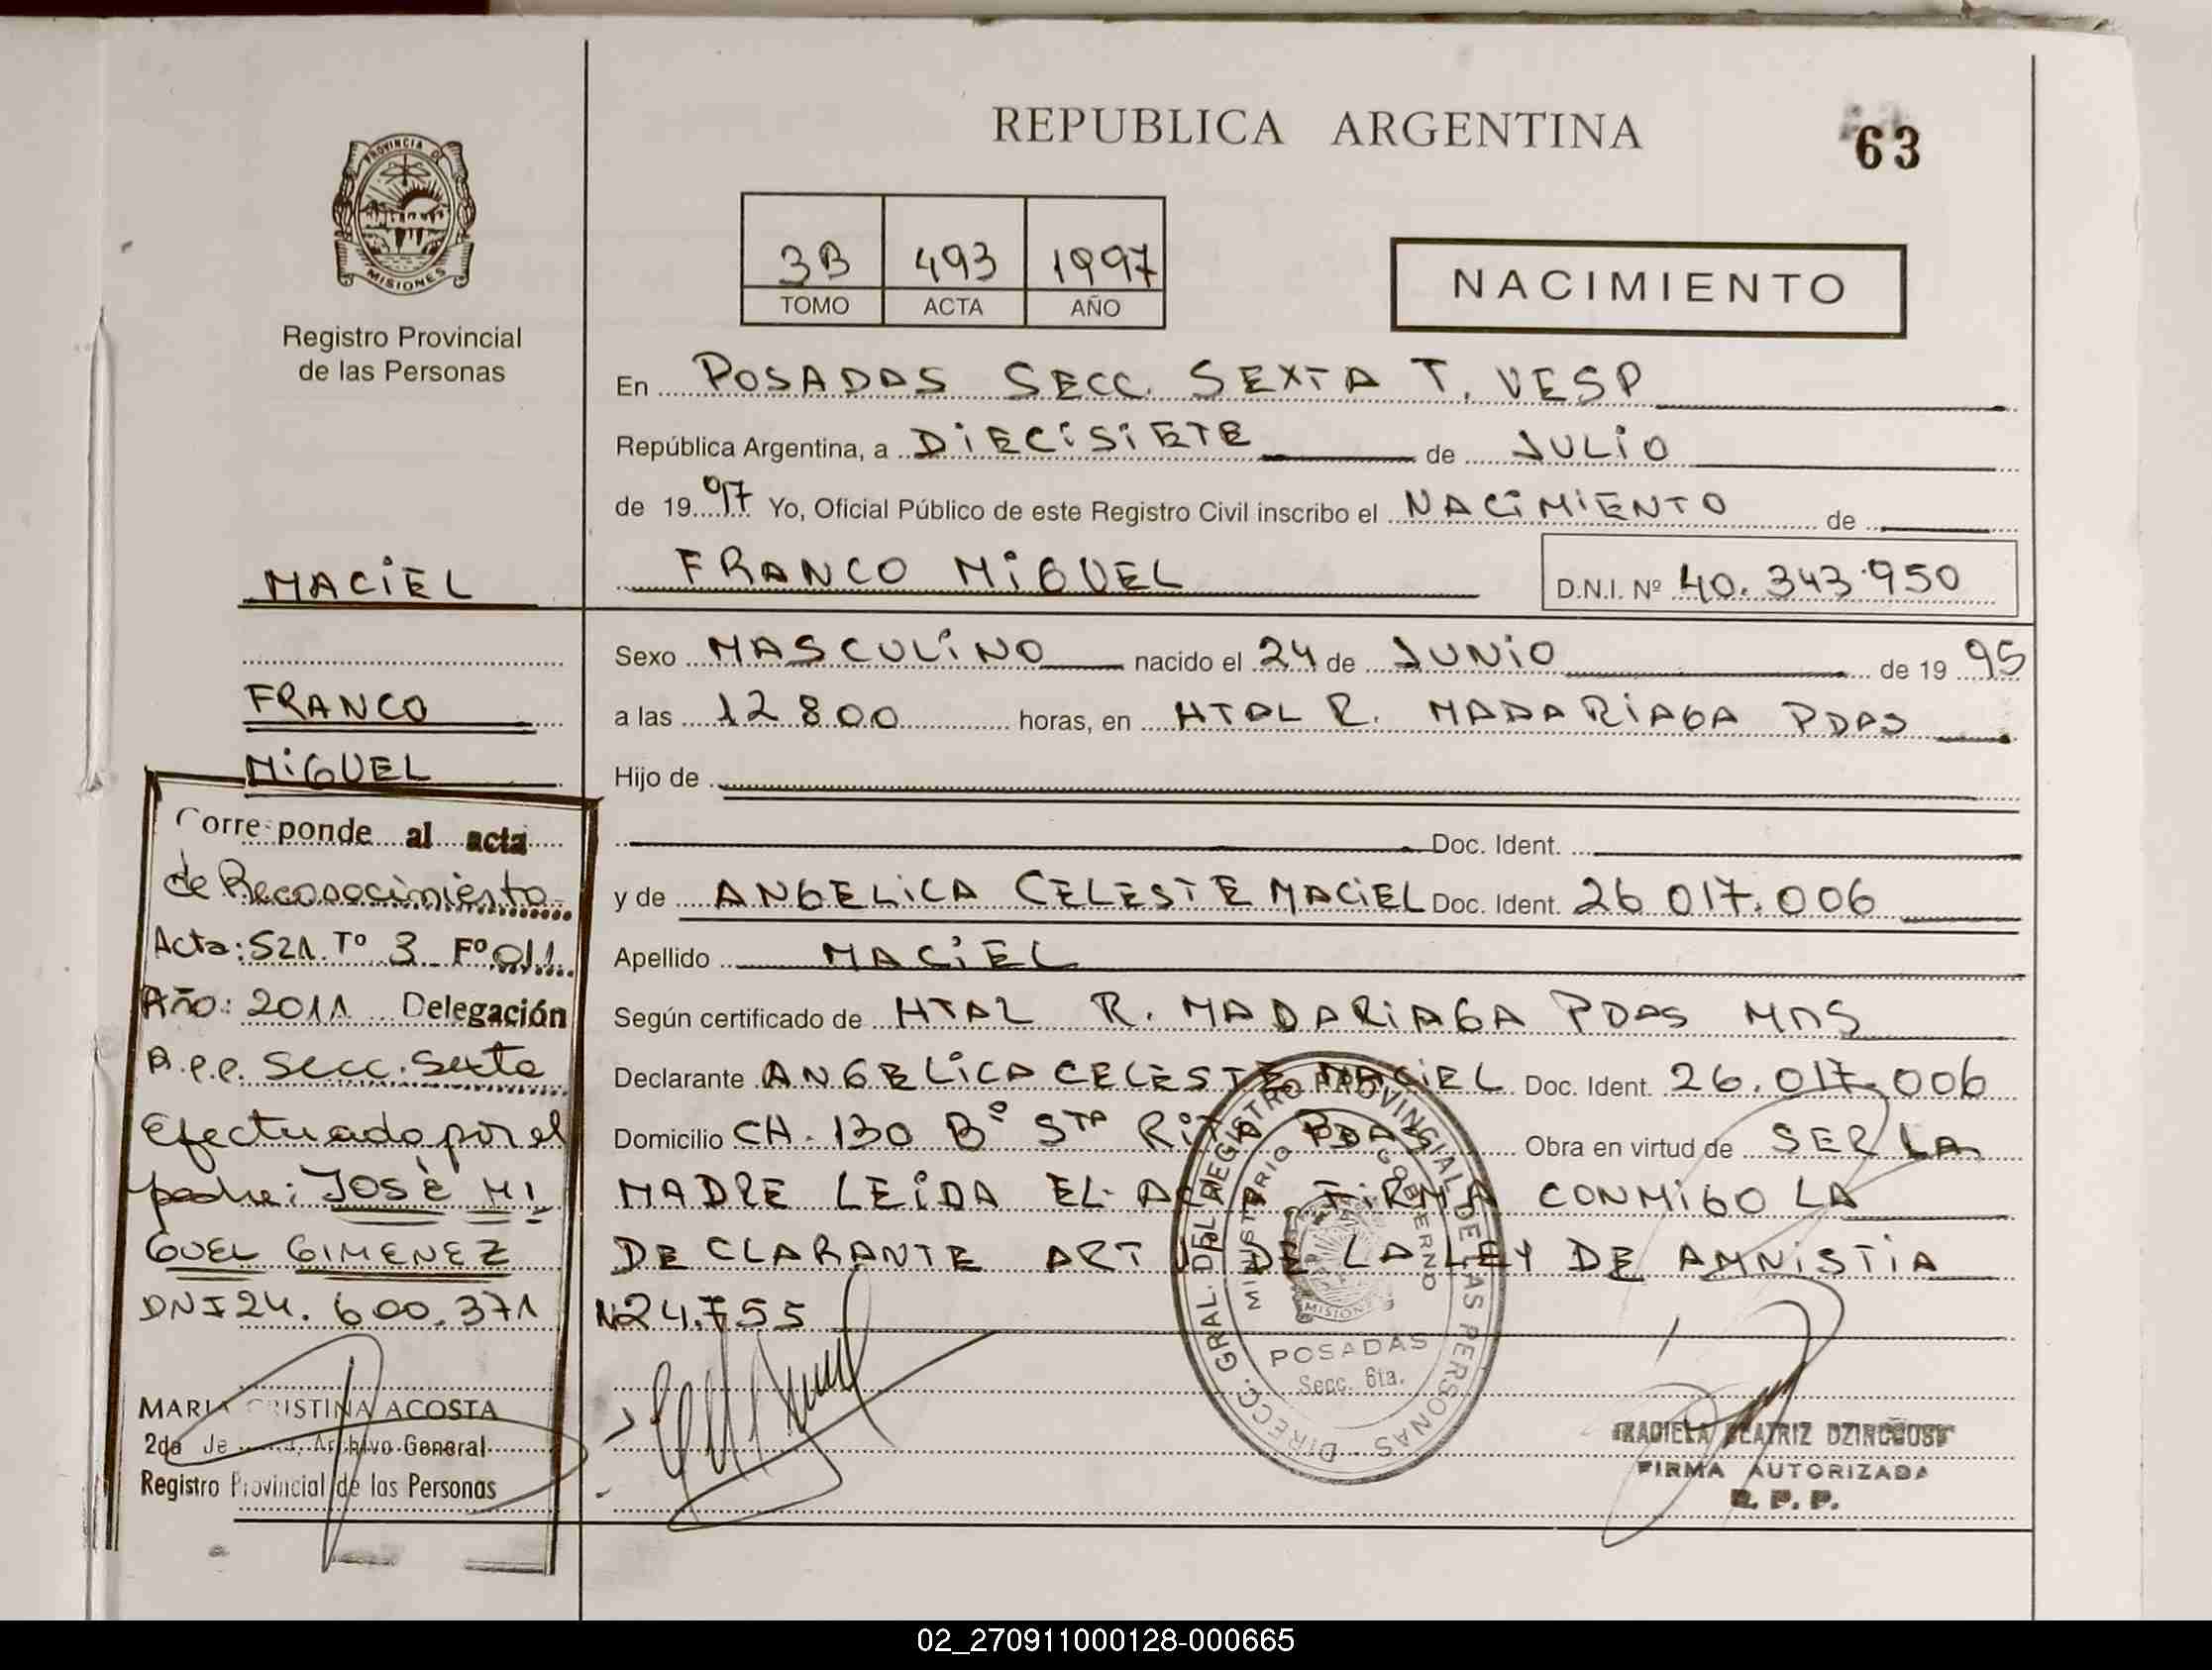 REPUBLICA ARGENTINA
63
PROVINCIA DE
MISIONES
Registro Provincial
de las Personas
3B 493 1997
TOMO ACTA AÑO
NACIMIENTO
En POSADAS SECC. SEXTA T. VESP
República Argentina, a DIECISIETE de JULIO
de 1997 Yo, Oficial Público de este Registro Civil inscribo el NACIMIENTO de
FRANCO MIGUEL
D.N.I. Nº 40.343.950
MACIEL
FRANCO
MIGUEL
Sexo MASCULINO nacido el 24 de JUNIO de 1995
a las 12 800 horas, en HTAL R. MADARIAGA PDAS
Hijo de
Doc. Ident.
y de ANGELICA CELESTE MACIEL Doc. Ident. 26 017.006
Apellido MACIEL
Según certificado de HTAL R. MADARIAGA PDAS MNS
Declarante ANGELICA CELESTE MACIEL Doc. Ident. 26.017.006
Domicilio CH. 130 Bº STA RITA PDAS Obra en virtud de SER LA
MADRE LEIDA EL ACTA FIRMA CONMIGO LA
DECLARANTE ART DE LA LEY DE AMNISTIA
N24.755
Corresponde al acta
de Reconocimiento
Acta: 521. Tº 3 Fº 011
Año: 2011 Delegación
R.P.P. Secc. Sexta
Efectuado por el
padre: JOSÉ MI
GUEL GIMENEZ
DNI 24.600.371
MARIA CRISTINA ACOSTA
2da Archivo General
Registro Provincial de las Personas
DIRECC. GRAL. DEL REGISTRO PROVINCIAL DE LAS PERSONAS
MINISTERIO GOBIERNO
MISIONES
POSADAS
Secc. 6ta.
BEATRIZ
FIRMA AUTORIZADA
R. P. P.
02_270911000128-000665